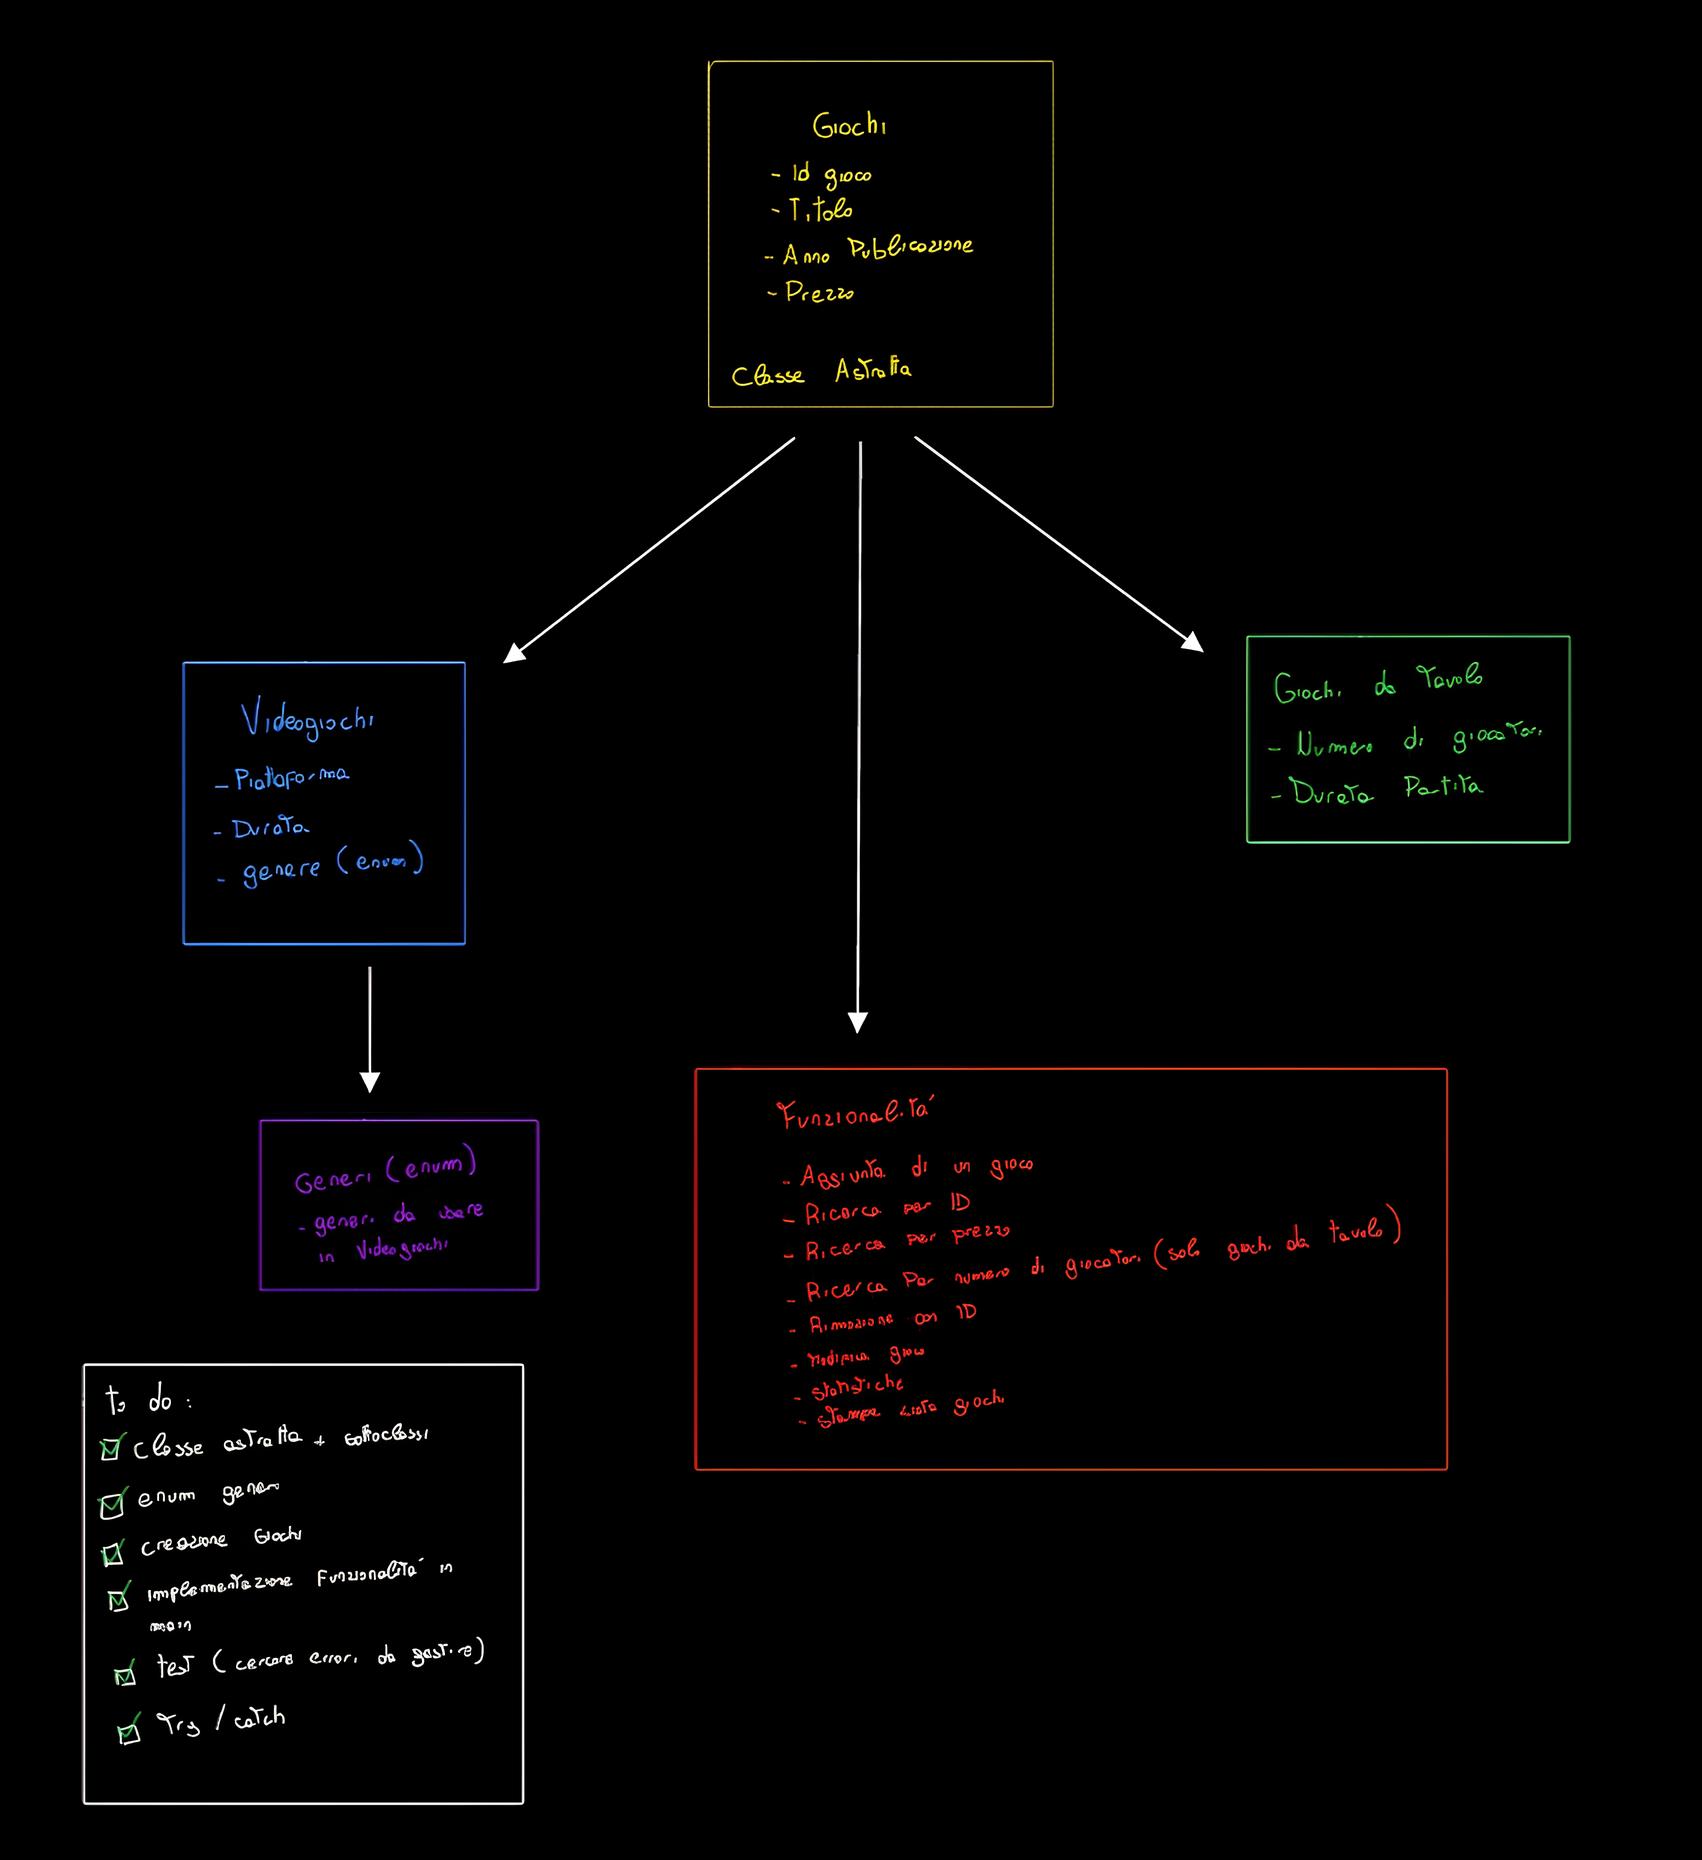 Giochi
- Id gioco
- Titolo
- Anno Pubblicazione
- Prezzo
Classe Astratta
Videogiochi
- Piattaforma
- Durata
- genere (enum)
Giochi da Tavolo
- Numero di giocatori
- Durata Partita
Generi (enum)
- generi da usare
in Videogiochi
Funzionalità
- Aggiunta di un gioco
- Ricerca per ID
- Ricerca per prezzo
- Ricerca Per numero di giocatori (solo giochi da tavolo)
- Rimozione con ID
- Modifica gioco
- statistiche
- stampa lista giochi
to do :
classe astratta + sottoclassi
enum genere
creazione Giochi
implementazione Funzionalità in
main
test (cercare errori da gestire)
Try / catch